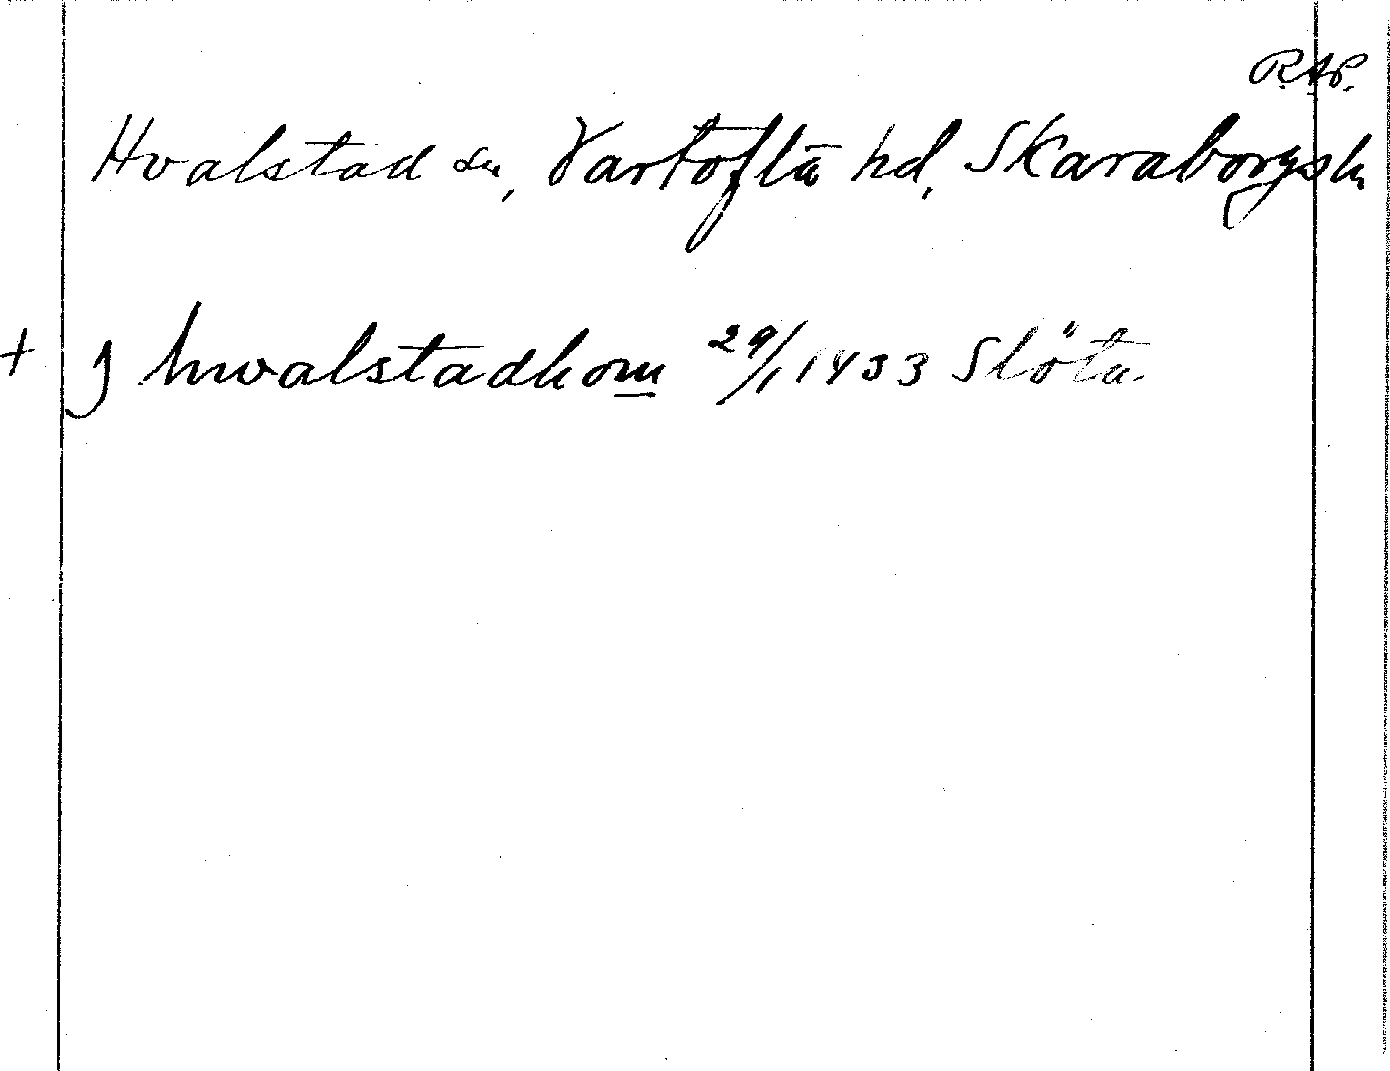 R.A.P.
Hvalstad sn, Vartofta hd, Skaraborgs l.
+ J hwalstadhom 29/1 1433 Slöta.